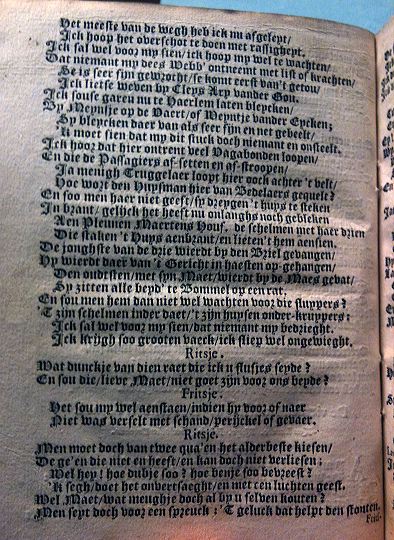 Het meeste van de wegh heb ick nu afgeleyt/
Ick hoop het overschot te doen met rasigheyt.
Ick sal wel voor my sien/ick hoop my wel te wachten/
Dat niemant my dees Webb' ontneemt met list of krachten/
Se is seer fijn gewrocht/se komt eerst van't getou/
Ick lietse weven by Cleys Arp vander Gou.
Ick souse garen nu te Haerlem laten bleycken/
By Meyntje op de Vaert/of Weyntje vander Eycken;
Sy bleycken daer van als seer fijn en net gebeelt/
'k moet sien dat my dit stuck doch niemant en onsteelt.
Ick hoor dat hier ontrent veel Vagabonden loopen/
En die de Passagiers af-setten en af-stroopen/
Ja menigh Truggelaer loopt hier oock achter 't velt/
Hoe wort den Huysman hier van Bedelaers gequelt?
En soo men haer niet geeft/sy dreygen 't huys te steken
In brant/ gelijck het heeft nu onlanghs noch gebleken
Aen Pleunen Maertens Houf. de schelmen met haer drien
Die staken 't Huys aenbrant/en lieten't hem aensien.
De jonghste van de drie wierdt by den Briel gevangen/
Hy wierdt daer van't Gericht in haesten op-gehangen/
Den oudtsten/met syn Maet/wierdt by de Maes gevat/
Sy zitten alle beyd' te Bommel op een rat.
En sou men hem dan niet wel wachten voor die sluypers?
'T zijn schelmen inder daet/'t zijn huysen onder-kruypers:
Ick sal wel voor my sien/dat niemant my bedrieght.
Ick krijgh soo grooten vaeck/ick sliep wel ongewieght.
Ritsje.
Wat dunckje van dien raet die ick u flusjes seyde?
En sou die/lieve Maet/niet goet zijn voor ons beyde?
Fritsje.
Het sou my wel aenstaen/indien hy voor of naer
Niet was verselt met schand/perijckel of gevaer.
Ritsje.
Men moet doch van twee qua'en het alderbeste kiesen/
De ge'en die niet en heeft/en kan doch niet verliesen;
Wel hey! hoe dubje soo? hoe benje soo bevreest?
'K segh/doet het onvertsaeght/en met een luchten geest.
Wel Maet/wat meughje doch al by u selven kouten?
Men seyt doch voor een spreuck: 'T geluck dat helpt den stouten.